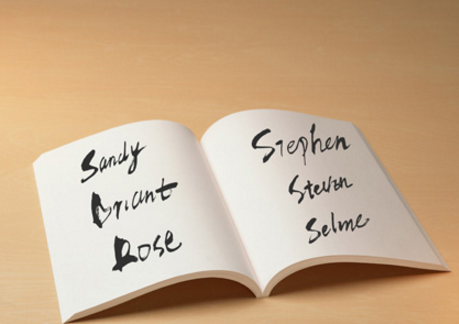 Sandy
Briant
Rose
Stephen
Steven
Selme